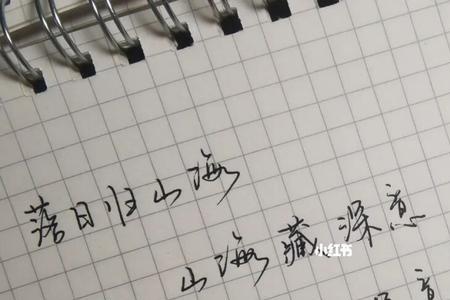 落日归山海
山海藏深意
小红书